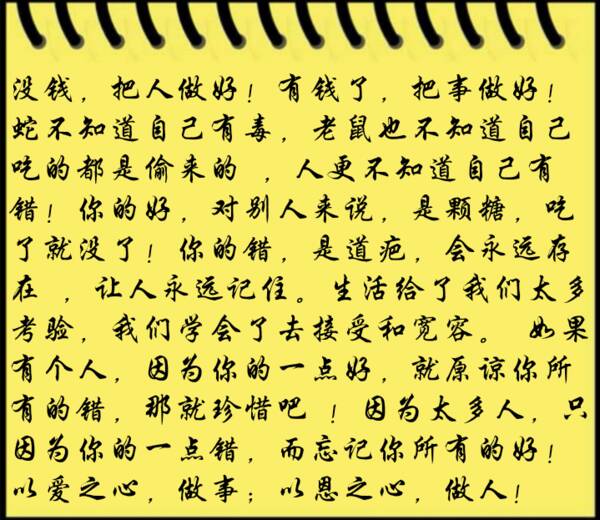 没钱，把人做好！有钱了，把事做好！
蛇不知道自己有毒，老鼠也不知道自己
吃的都是偷来的 ，人更不知道自己有
错！你的好，对别人来说，是颗糖，吃
了就没了！你的错，是道疤，会永远存
在 ，让人永远记住。生活给了我们太多
考验，我们学会了去接受和宽容。 如果
有个人，因为你的一点好，就原谅你所
有的错，那就珍惜吧 ！因为太多人，只
因为你的一点错，而忘记你所有的好！
以爱之心，做事；以恩之心，做人！